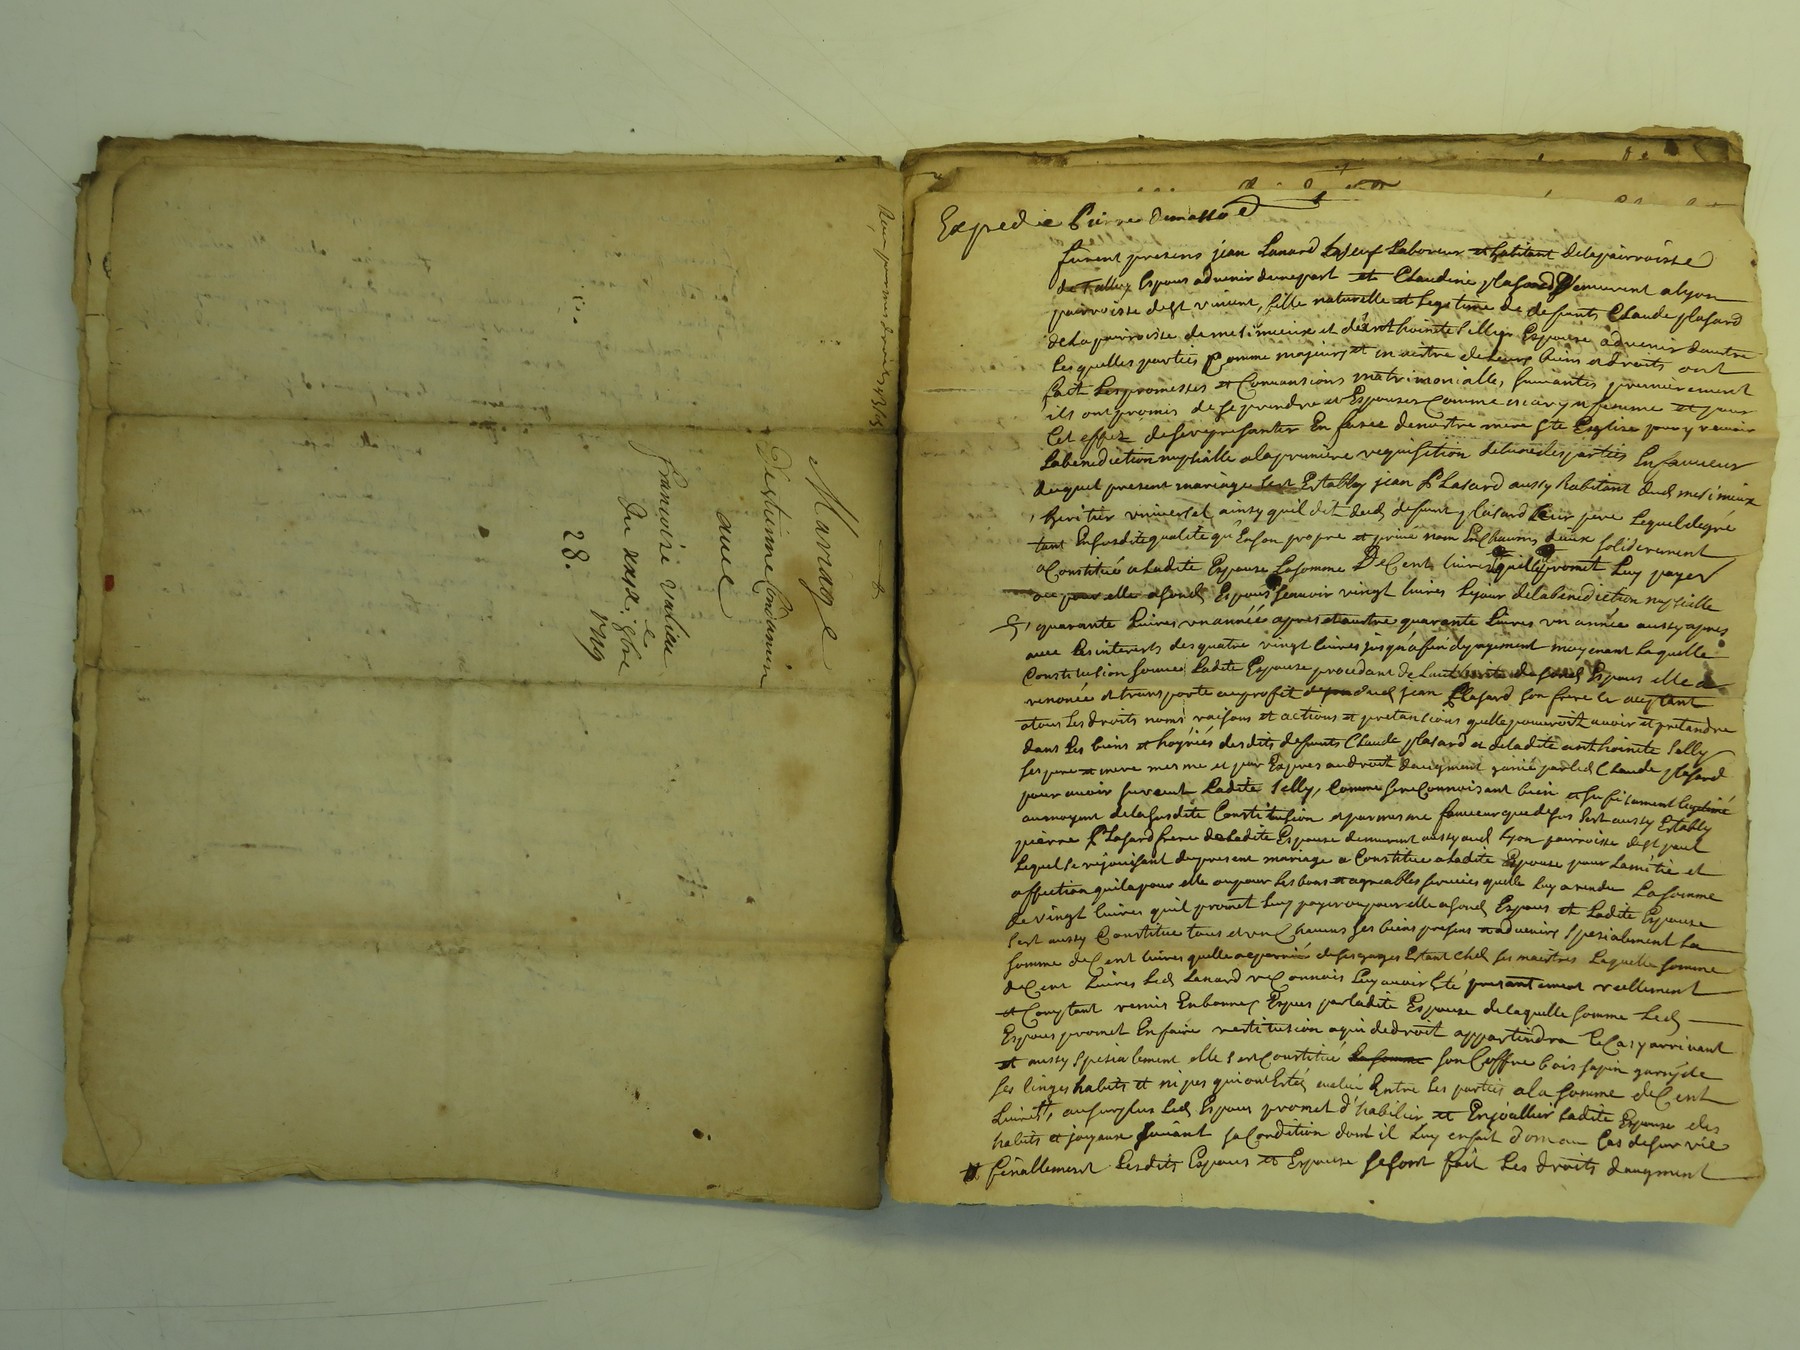 Mariage
Destienne Condamin
avec
francoise valicu
Du xxxe. 9bre
1719
28.
Expedie Pierre
furent presens jean Lanard Laboureur et habitant delaparroisse
Espoux advenir dunepart et Claudine plasard Demeurent alyon
parroisse dest vincent, fille naturelle et Legitime de defunts Claude plasard
delaparroisse de mesimieux et Espouse advenir dautre
Lesquelles parties Comme majeurs et maitre deleurs biens et droits ont
fait Lespromesses et Convansions matrimonialles, suivantes premierement
ils ontpromis de seprendre et Espouser Comme mary et femme et pour
Cet effet desereprésanter En fasce denostre mere ste Esglise pour y recevoir
Labenediction nuptialle alapremiere requisition delunedesparties En faveur
duquel present mariage sest Establly jean Plasard aussy habitant dud mesimieux
heritier universel, ainsy quil dit dud defunt plasard leur pere Lequel degré
tant Ensusditequalité qu'Enson propre et privé nom solidairement
aConstitué aladite Espouse Lasomme DeCent livres quil promet Luy payer
ou pour elle ausud Espoux scavoir vingt livres Lejour delabenediction nuptialle
quarante Livres unannéé apres et autre quarante Livres un année aussy apres
avec Lesinterests desquatre vingt livres jusqu'afin dypayement moyenant Laquelle
Constitusion somme Ladite Espouse procedant de Espoux elle a
renoncé et transporté auprofit dud jean Plasard son frere Ce aceptant
atous Les droits noms raisons et actions et pretansions quelle pouvroit avoir et pretandre
dans Les biens et hoyries desdits defunts Claude plasard et deladite anthoinette Selly
ses pere et mere mesme et par Expres audroit daugment parled Claude plasard
pour avoir survecu Ladite Selly, Comme sereConnoisant bien et sufisament
aumoyent delasusdite Constitusion et parmesme faveur que desus sest aussy Establly
pierre Plasard frere deladite Espouse demeurent aussy aud Lyon parroisse dest paul
Lequel serejouisant dupresent mariage a Constitué aladite Espouse pour Lamitié et
affection quilapour elle oupour Lesbons et agreables services quelle Luy a rendu Lasomme
de vingt livres quil promet Luy payer oupour elle asond Espoux et Ladite Espouse
sest aussy Constitué tous et un Chacuns ses biens presens et advenirs spesialement La
somme deCent livres quelle de sesgages Estant Ches ses maistres Laquelle somme
deCent Livres Led Lanard reConnois Luy avoir Esté presantement reellement
et Comptant remis Enbonnes Espces parladite Espouse delaquelle somme Led
Espoux promet Enfaire restitusion aqui dedroit appartiendra leCasyarrivant
et aussy spesialement elle sestConstitué la somme son Coffre bois sapin garnyde
ses linges habits et nipes quiontEstés evalué Entre Les parties ala somme deCent
Livres, ausurplus Led Espoux promet d'habilier et Enjoallier Ladite Espouse des
habits et joyaux suivant saCondition dont il Luy enfait don au Cas desurvie
finallement Lesdits Espoux et Espouse sesont fait Les droits daugment